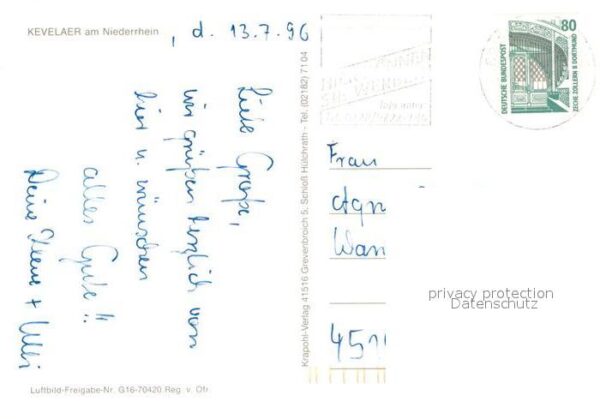 KEVELAER am Niederrhein
, d. 13.7.96
Liebe
wir grüßen herzlich von
hier u. wünschen
alles Gute!!
Deine Irene + Ulli
Krapohl-Verlag 41516 Grevenbroich 5, Schloß Hülchrath - Tel. (02182) 71 04
80
DEUTSCHE BUNDESPOST
ZECHE ZOLLERN II DORTMUND
Frau
Agn
Wan
451
privacy protection
Datenschutz
Luftbild-Freigabe-Nr. G16-70420 Reg. v. Ofr.